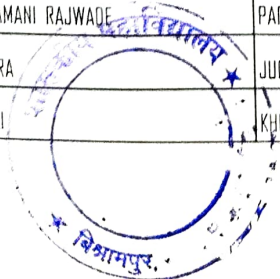 AMANI RAJWADE PA
RA JU
I KH
महाविद्यालय ★
★ बिश्रामपुर